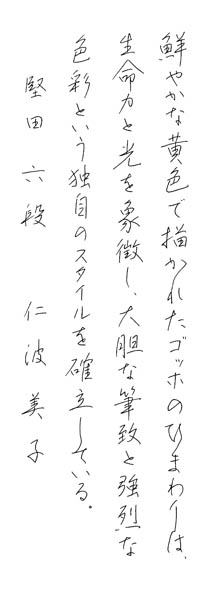 鮮やかな黄色で描かれたゴッホのひまわりは、
生命力と光を象徴し、大胆な筆致と強烈な
色彩という独自のスタイルを確立している。
堅田六段 仁波美子